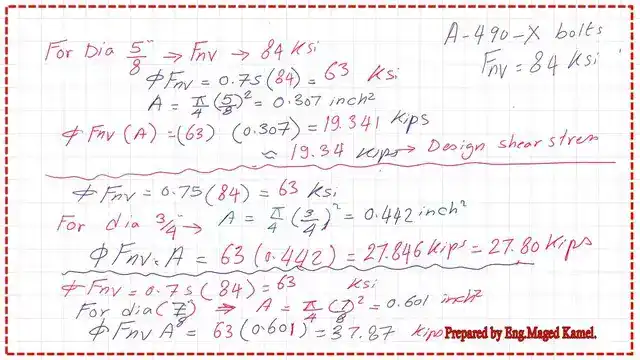 A-490-X bolts
Fnv = 84 ksi
For Dia 5/8" → Fnv → 84 ksi
ΦFnv = 0.75(84) = 63 ksi
A = π/4 (5/8)² = 0.307 inch²
ΦFnv(A) = (63) (0.307) = 19.341 kips
≈ 19.34 kips → Design shear stress
ΦFnv = 0.75(84) = 63 ksi
For dia 3/4" → A = π/4 (3/4)² = 0.442 inch²
ΦFnv.A = 63(0.442) = 27.846 kips = 27.80 kips
ΦFnv = 0.75(84) = 63 ksi
For dia(7/8") ⇒ A = π/4 (7/8)² = 0.601 inch²
ΦFnv A = 63(0.601) = 37.87 kips
Prepared by Eng.Maged Kamel.